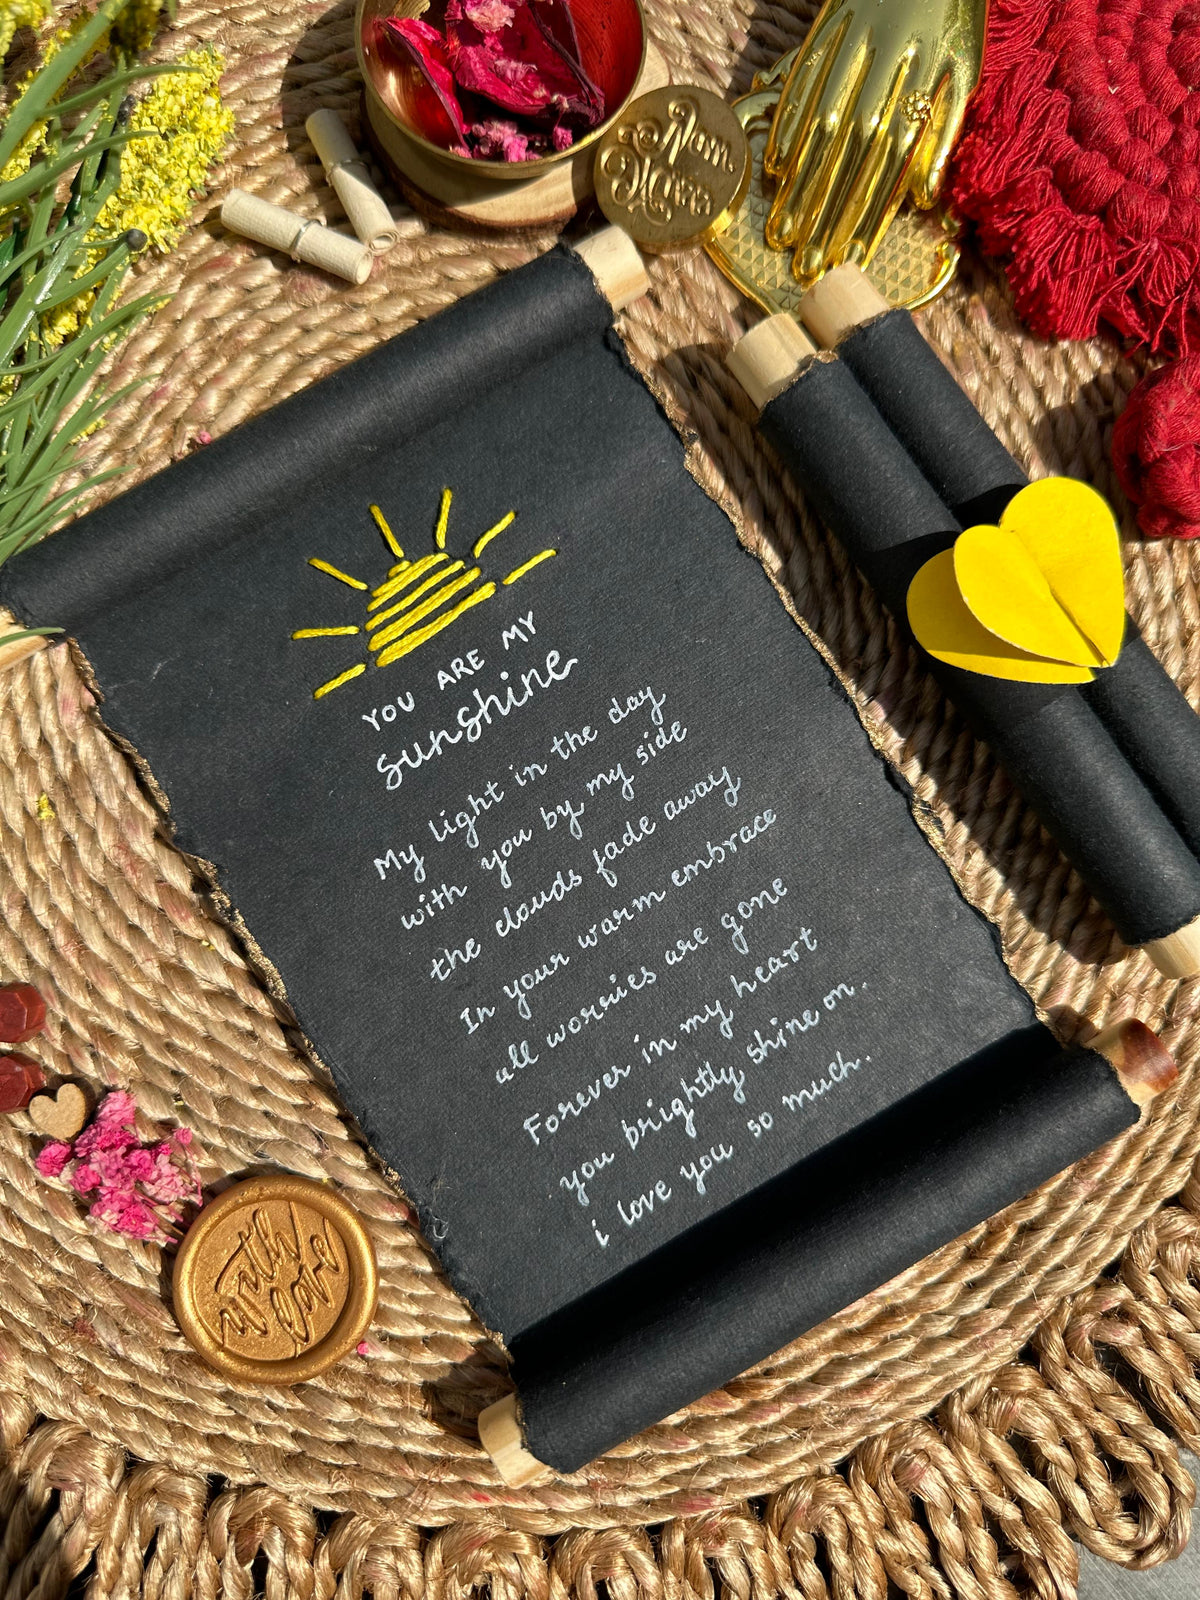 YOU ARE MY
sunshine
My light in the day
with you by my side
the clouds fade away
In your warm embrace
all worries are gone
Forever in my heart
you brightly shine on.
i love you so much.
with
love